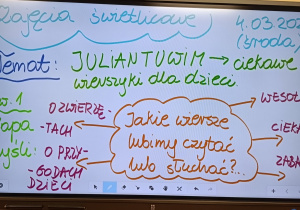 Zajęcia świetlicowe
4.03.202
(środa)
Temat: JULIAN TUWIM → ciekawe
wierszyki dla dzieci.
O ZWIERZĘ-
-TACH
O PRZY-
-GODACH
DZIECI
Jakie wiersze
lubimy czytać
lub słuchać?...
WESOŁ
CIEKA
ZABA